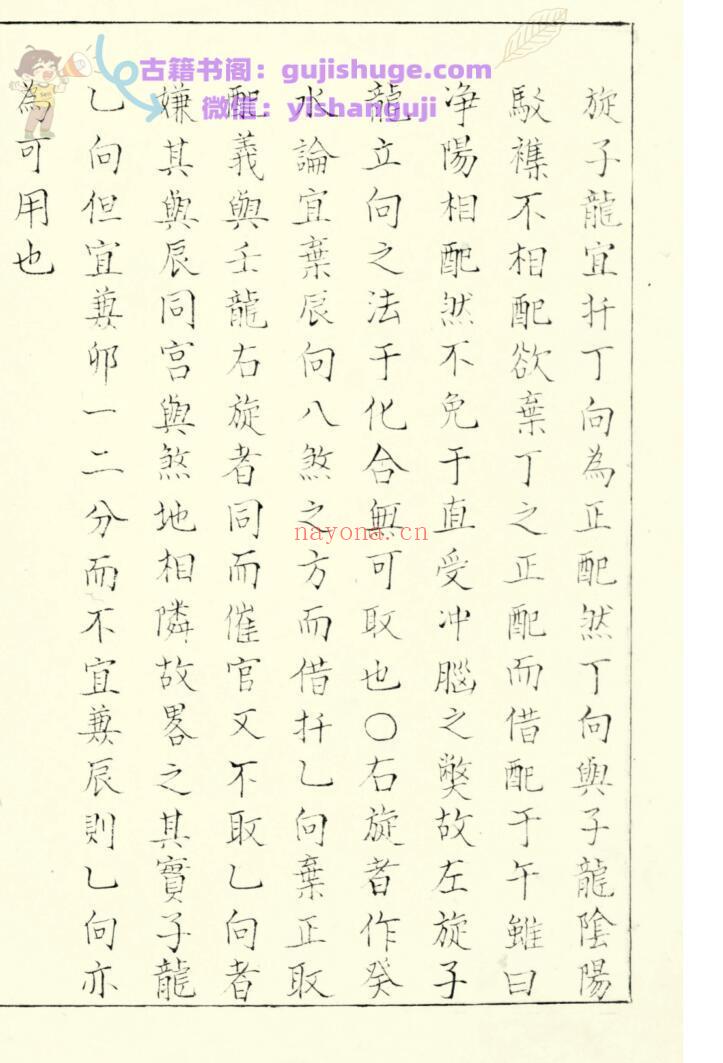 旋子龍宜扦丁向為正配然丁向與子龍陰陽
駁襍不相配欲棄丁之正配而借配于午雖曰
净陽相配然不免于直受冲腦之獘故左旋子
龍立向之法于化合無可取也〇右旋者作癸
水論宜棄辰向八煞之方而借扦乚向棄正取
配義與壬龍右旋者同而催官又不取乚向者
嫌其與辰同宫與煞地相隣故畧之其實子龍
乚向但宜蒹卯一二分而不宜蒹辰則乚向亦
為可用也
古籍书阁：gujishuge.com
微信：yishanguji
nayona.cn